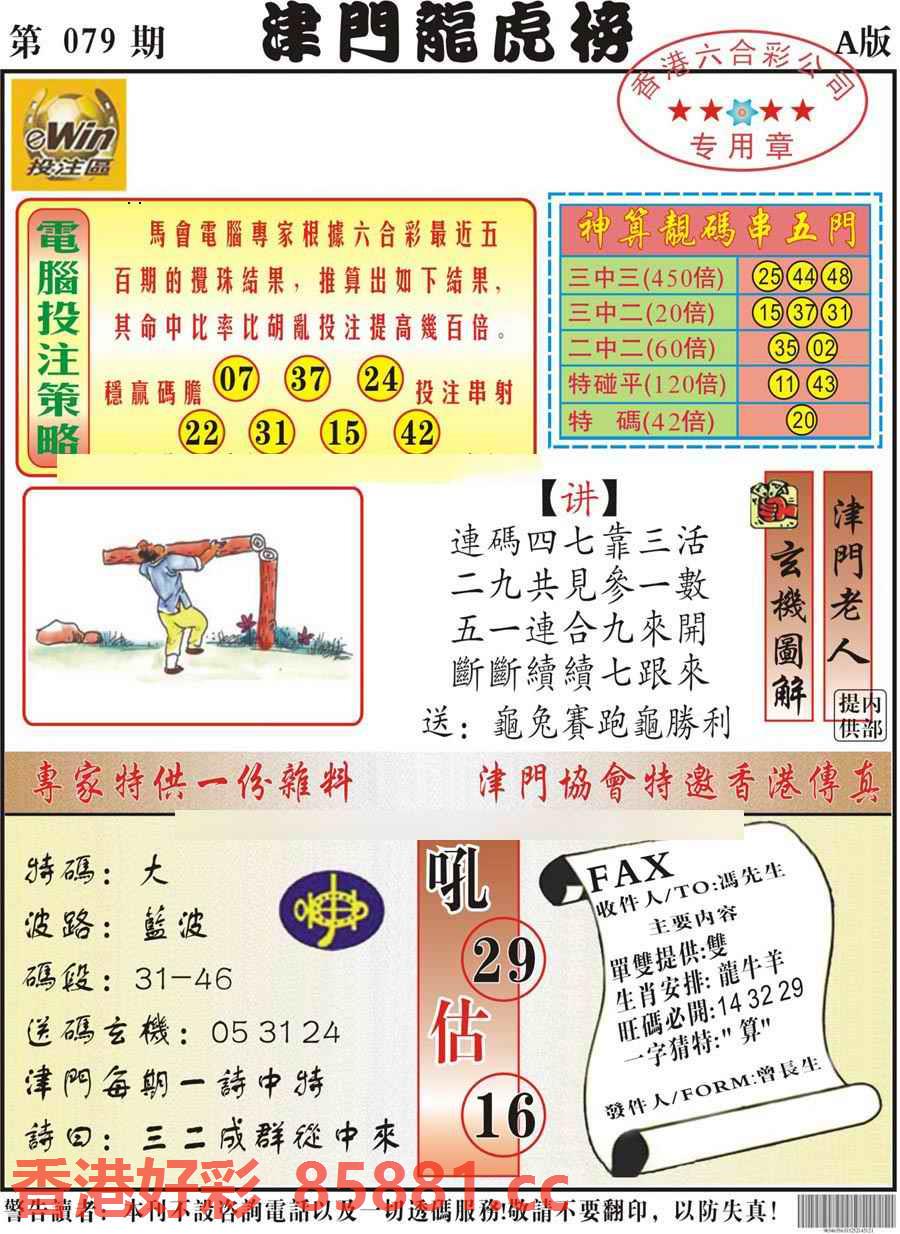 第 079 期
津門龍虎榜
A版
香港六合彩公司
专用章
eWin
投注區
電腦投注策略
馬會電腦專家根據六合彩最近五
百期的攪珠結果，推算出如下結果，
其命中比率比胡亂投注提高幾百倍。
穩贏碼膽 07 37 24 投注串射
22 31 15 42
神算靚碼串五門
三中三(450倍) 25 44 48
三中二(20倍) 15 37 31
二中二(60倍) 35 02
特碰平(120倍) 11 43
特 碼(42倍) 20
【讲】
連碼四七靠三活
二九共見參一數
五一連合九來開
斷斷續續七跟來
送：龜兔賽跑龜勝利
玄機圖解
津門老人
内部提供
專家特供一份雜料
津門協會特邀香港傳真
特碼：大
波路：藍波
碼段：31-46
送碼玄機：05 31 24
津門每期一詩中特
詩曰：三二成群從中來
吼
29
估
16
FAX
收件人/TO:馮先生
主要内容
單雙提供:雙
生肖安排:龍牛羊
旺碼必開:14 32 29
一字猜特:"算"
發件人/FORM:曾長生
香港好彩 85881.cc
警告讀者：本刊不設咨詢電話以及一切透碼服務!敬請不要翻印，以防失真!